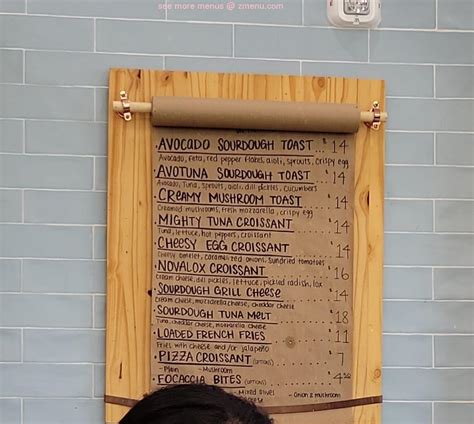 see more menus @ zmenu.com
• AVOCADO SOURDOUGH TOAST... $ 14
Avocado, feta, red pepper flakes, aioli, sprouts, crispy egg
AVOTUNA SOURDOUGH TOAST 14
Avocado, Tuna, sprouts, aioli, dill pickles, cucumbers
• CREAMY MUSHROOM TOAST 14
Creamed mushrooms, fresh mozzarella, crispy egg
• MIGHTY TUNA CROISSANT 14
Tuna, lettuce, hot peppers, croissant
• CHEESY EGG CROISSANT 14
Cheesy omelet, caramelized onions, sundried tomatoes
• NOVALOX CROISSANT 16
Cream cheese, dill pickles, lettuce, pickled radish, lox
• SOURDOUGH GRILL CHEESE 14
cream cheese, mozzarella cheese, cheddar cheese
• SOURDOUGH TUNA MELT 18
Tuna, cheddar cheese, mozzarella cheese
• LOADED FRENCH FRIES 11
Fries with cheese and/or jalapeño
• PIZZA CROISSANT 7
- Plain - Mushroom
• FOCACCIA BITES $4.50
- Mixed Olives - Onion & mushroom